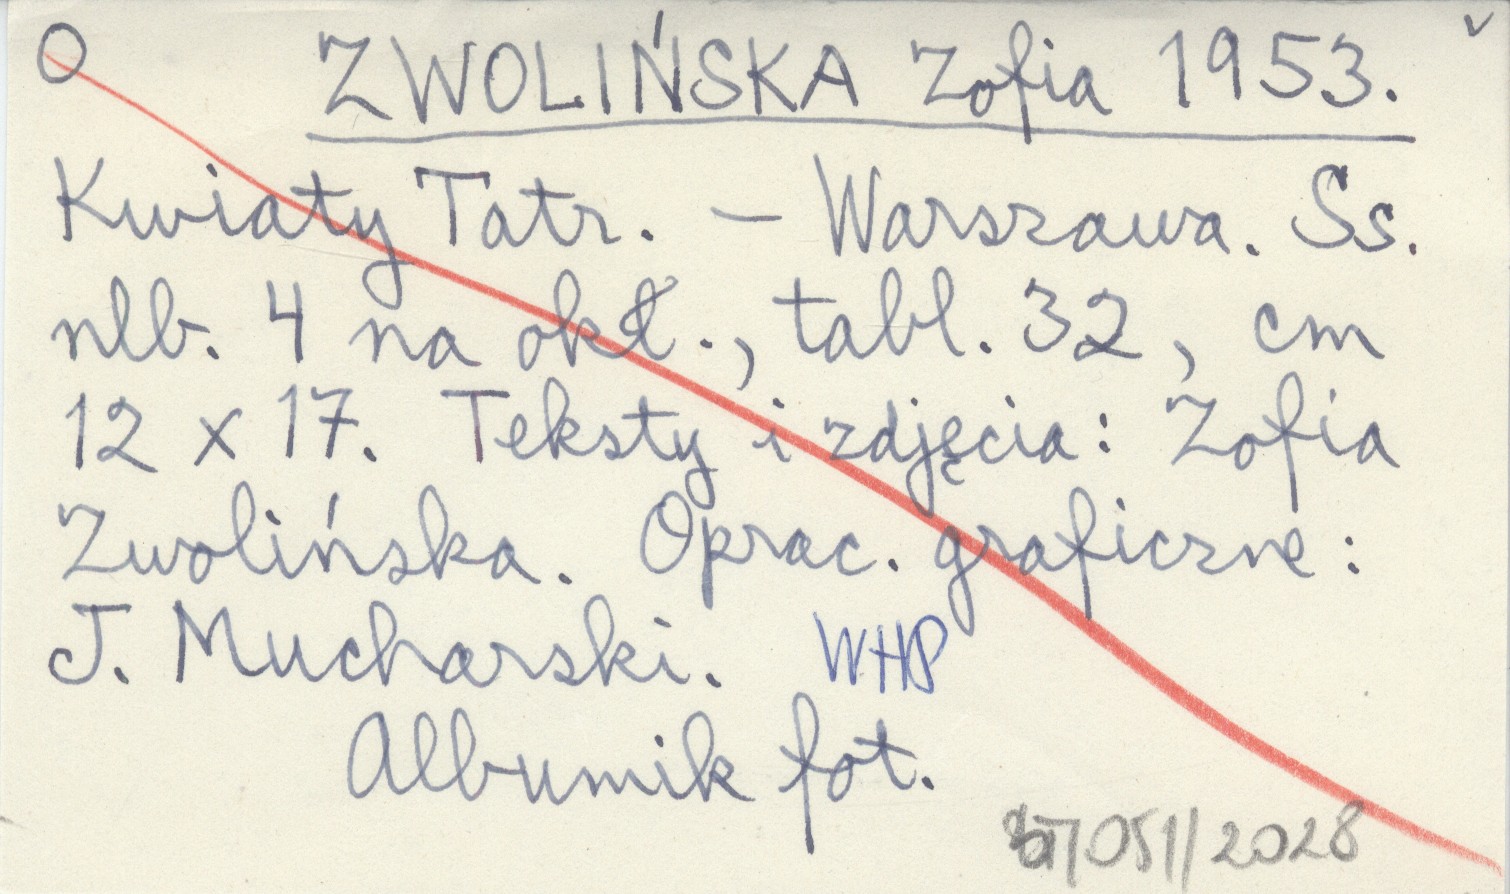 O ZWOLIŃSKA Zofia 1953. v
Kwiaty Tatr. – Warszawa. Ss.
nlb. 4 na okł., tabl. 32, cm
12 x 17. Teksty i zdjęcia: Zofia
Zwolińska. Oprac. graficzne:
J. Mucharski. WHP
Albumik fot.
051//2028